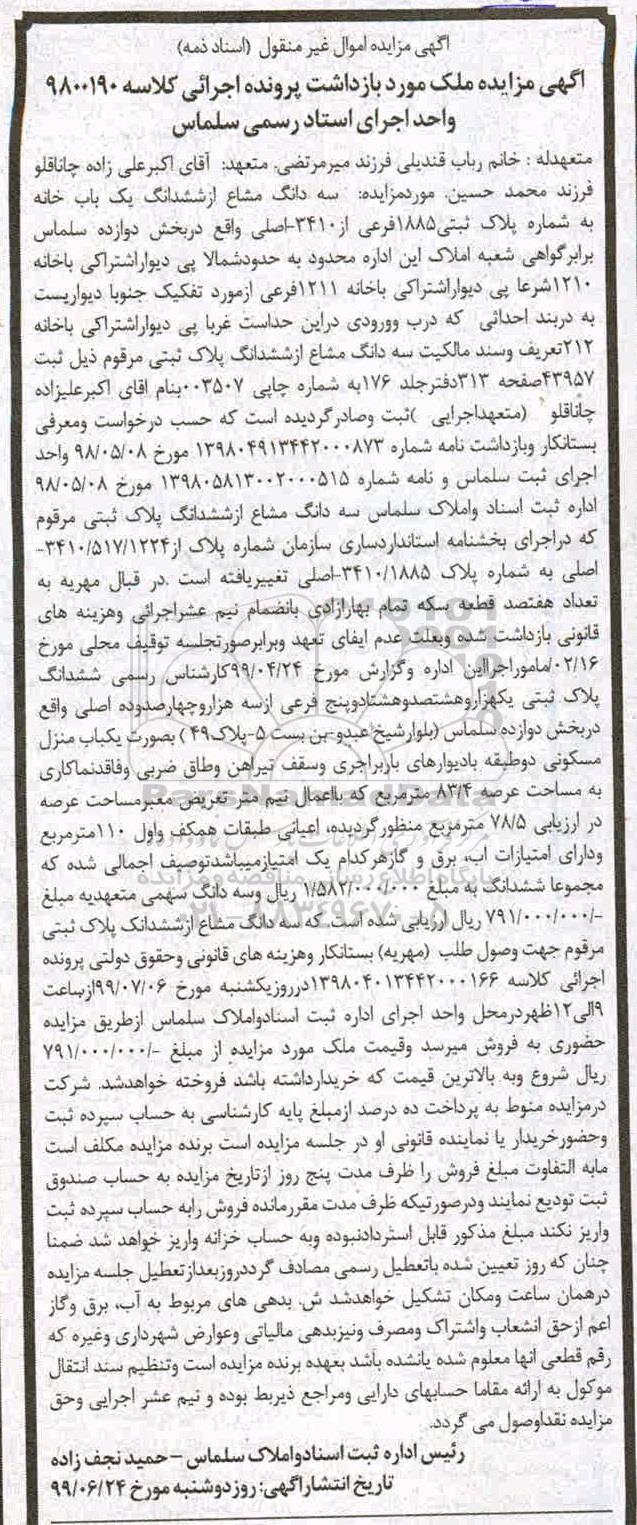 اگهی مزایده اموال غیر منقول (اسناد ذمه)
اگهی مزایده ملک مورد بازداشت پرونده اجرائی کلاسه ۹۸۰۰۱۹۰
واحد اجرای استاد رسمی سلماس
متعهدله : خانم رباب قندیلی فرزند میرمرتضی. متعهد: آقای اکبرعلی زاده چاناقلو
فرزند محمد حسین. موردمزایده: سه دانگ مشاع ازششدانگ یک باب خانه
به شماره پلاک ثبتی۱۸۸۵فرعی از۳۴۱۰-اصلی واقع دربخش دوازده سلماس
برابرگواهی شعبه املاک این اداره محدود به حدودشمالا پی دیواراشتراکی باخانه
۱۲۱۰شرعا پی دیواراشتراکی باخانه ۱۲۱۱فرعی ازمورد تفکیک جنوبا دیواریست
به دربند احداثی که درب وورودی دراین حداست غربا پی دیواراشتراکی باخانه
۲۱۲تعریف وسند مالکیت سه دانگ مشاع ازششدانگ پلاک ثبتی مرقوم ذیل ثبت
۴۳۹۵۷صفحه ۳۱۳دفترجلد ۱۷۶به شماره چاپی ۰۰۳۵۰۷بنام اقای اکبرعلیزاده
چاناقلو (متعهداجرایی )ثبت وصادرگردیده است که حسب درخواست ومعرفی
بستانکار وبازداشت نامه شماره ۱۳۹۸۰۴۹۱۳۴۴۲۰۰۰۸۷۳ مورخ ۹۸/۰۵/۰۸ واحد
اجرای ثبت سلماس و نامه شماره ۱۳۹۸۰۵۸۱۳۰۰۲۰۰۰۵۱۵ مورخ ۹۸/۰۵/۰۸
اداره ثبت اسناد واملاک سلماس سه دانگ مشاع ازششدانگ پلاک ثبتی مرقوم
که دراجرای بخشنامه استانداردساری سازمان شماره پلاک از۳۴۱۰/۵۱۷/۱۲۲۴-
اصلی به شماره پلاک ۳۴۱۰/۱۸۸۵-اصلی تغییریافته است .در قبال مهریه به
تعداد هفتصد قطعه سکه تمام بهارازادی بانضمام نیم عشراجرائی وهزینه های
قانونی بازداشت شده وبعلت عدم ایفای تعهد وبرابرصورتجلسه توقیف محلی مورخ
۰۲/۱۶/ماموراجرااین اداره وگزارش مورخ ۹۹/۰۴/۲۴کارشناس رسمی ششدانگ
پلاک ثبتی یکهزاروهشتصدوهشتادوپنج فرعی ازسه هزاروچهارصدوده اصلی واقع
دربخش دوازده سلماس (بلوارشیخ عبدو-بن بست ۵-پلاک۴۹ ) بصورت یکباب منزل
مسکونی دوطبقه بادیوارهای باربراجری وسقف تیراهن وطاق ضربی وفاقدنماکاری
به مساحت عرصه ۸۳/۴ مترمربع که بااعمال نیم متر تعریض معبرمساحت عرصه
در ارزیابی ۷۸/۵ مترمربع منظورگردیده، اعیانی طبقات همکف واول ۱۱۰مترمربع
ودارای امتیازات آب، برق و گازهرکدام یک امتیازمیباشدتوصیف اجمالی شده که
مجموعا ششدانگ به مبلغ ۱/۵۸۲/۰۰۰/۰۰۰ ریال وسه دانگ سهمی متعهدبه مبلغ
۷۹۱/۰۰۰/۰۰۰/- ریال ارزیابی شده است که سه دانگ مشاع ازششدانک پلاک ثبتی
مرقوم جهت وصول طلب (مهریه) بستانکار وهزینه های قانونی وحقوق دولتی پرونده
اجرائی کلاسه ۱۳۹۸۰۴۰۱۳۴۴۲۰۰۰۱۶۶درروزیکشنبه مورخ ۹۹/۰۷/۰۶ازساعت
۹الی۱۲ظهردرمحل واحد اجرای اداره ثبت اسنادواملاک سلماس ازطریق مزایده
حضوری به فروش میرسد وقیمت ملک مورد مزایده از مبلغ ۷۹۱/۰۰۰/۰۰۰/-
ریال شروع وبه بالاترین قیمت که خریدارداشته باشد فروخته خواهدشد. شرکت
درمزایده منوط به پرداخت ده درصد ازمبلغ پایه کارشناسی به حساب سپرده ثبت
وحضورخریدار یا نماینده قانونی او در جلسه مزایده است برنده مزایده مکلف است
مابه التفاوت مبلغ فروش را ظرف مدت پنج روز ازتاریخ مزایده به حساب صندوق
ثبت تودیع نمایند ودرصورتیکه ظرف مدت مقررمانده فروش رابه حساب سپرده ثبت
واریز نکند مبلغ مذکور قابل استردادنبوده وبه حساب خزانه واریز خواهد شد ضمنا
چنان که روز تعیین شده باتعطیل رسمی مصادف گرددروزبعدازتعطیل جلسه مزایده
درهمان ساعت ومکان تشکیل خواهدشد ش. بدهی های مربوط به آب، برق وگاز
اعم ازحق انشعاب واشتراک ومصرف ونیزبدهی مالیاتی وعوارض شهرداری وغیره که
رقم قطعی انها معلوم شده یانشده باشد بعهده برنده مزایده است وتنظیم سند انتقال
موکول به ارائه مقاصا حسابهای دارایی ومراجع ذیربط بوده و نیم عشر اجرایی وحق
مزایده نقداوصول می گردد.
رئیس اداره ثبت اسنادواملاک سلماس – حمید نجف زاده
تاریخ انتشاراگهی: روزدوشنبه مورخ ۹۹/۰۶/۲۴
ParsNamadData
پایگاه اطلاع رسانی مناقصه و مزایده
۰۲۱-۸۸۳۴۹۶۷۰-۵